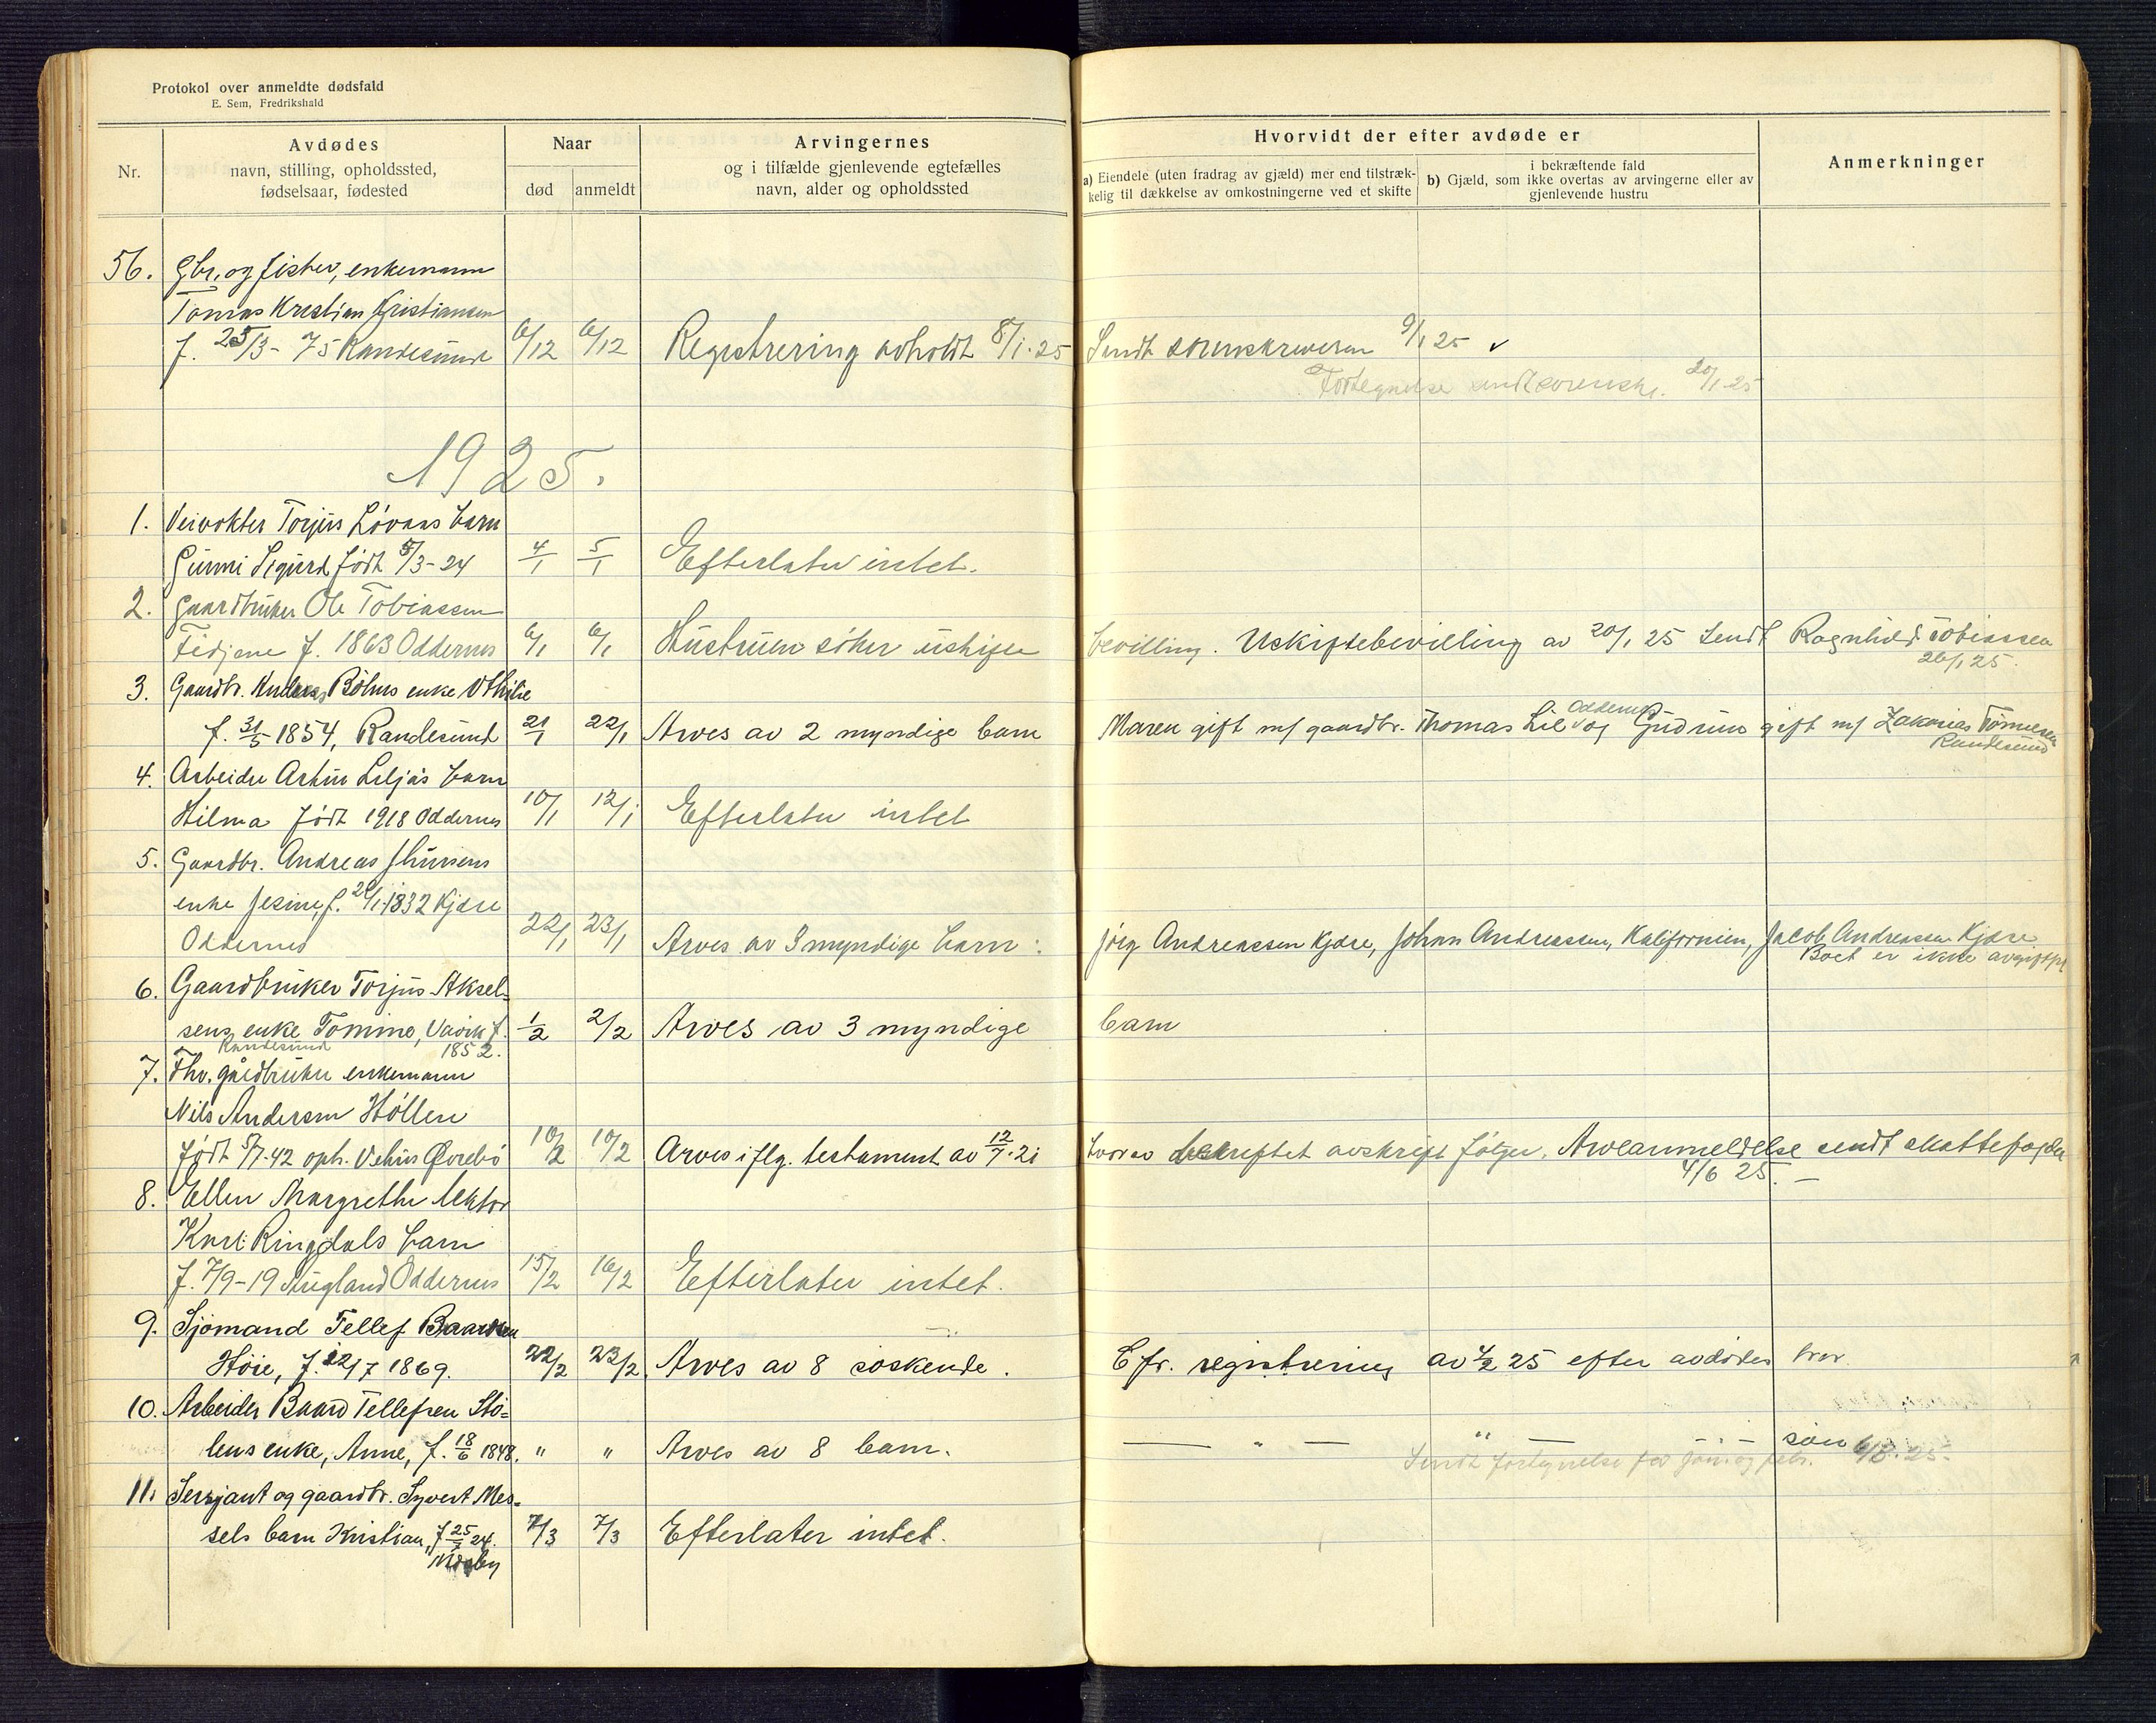 Protokol over anmeldte dødsfald
E. Sem, Fredrikshald
Nr.
Avdødes
navn, stilling, opholdssted,
fødselsaar, fødested
Naar
død
anmeldt
Arvingernes
og i tilfælde gjenlevende egtefælles
navn, alder og opholdssted
Hvorvidt der efter avdøde er
a) Eiendele (uten fradrag av gjæld) mer end tilstræk-
kelig til dækkelse av omkostningerne ved et skifte
i bekræftende fald
b) Gjæld, som ikke overtas av arvingerne eller av
gjenlevende hustru
Anmerkninger
56. Gbr. og fisker, enkemann
Tomas Kristian Kristiansen
f. 25/3-75 Randesund 6/12 6/12 Registrering avholdt 8/1-25 Sendt sorenskriveren 9/1 25 ✓
Fortegnelse sendt sorenskr. 20/1-25
1925.
1. Veivokter Torjus Løvaas barn
Gunni Sigurd født 5/3-24 4/1 5/1 Efterlater intet.
2. Gaardbruker Ole Tobiassen
Fidjene f. 1863 Oddernes 6/1 6/1 Hustruen søker uskifte bevilling. Uskiftebevilling av 20/1 25 sendt Ragnhild Tobiassen
26/1 25.
3. Gaardbr. Anders Bøhns enke Othilie
f. 31/5 1854, Randesund 21/1 22/1 Arves av 2 myndige barn Maren gift m/ gaardbr. Thomas Lie Oddernes og Gudrun gift m/ Zakarias Tønnesen
Randesund
4. Arbeider Artur Liljas barn
Hilma født 1918 Oddernes 10/1 12/1 Efterlater intet
5. Gaardbr. Andreas
enke Jesine, f. 1832 Kjære
Oddernes 22/1 23/1 Arves av 3 myndige barn: Jørg Andreassen Kjære, Johan Andreassen, Kalifornien, Jacob Andreassen Kjære
Boet er ikke avgiftspl
6. Gaardbruker Torjus Aksel-
sens enke Tomine, f. 1/2 2/2 Arves av 3 myndige barn
Randesund 1852.
7. Fhv. gårdbruker enkemann
Nils Andersen Høllen
født 5/7-42 oph. Vehus Øvrebø 10/2 10/2 Arves iflg. testament av 12/7-21 hvorav bekreftet avskrift følger. Arveanmeldelse sendt skattefogden
4/6 25. —
8. Ellen Margrethe lektor
Karl Ringdals barn
f. 7/9-19 Augland Oddernes 15/2 16/2 Efterlater intet.
9. Sjømand Tellef Baardsen
Høie, f. 12/7 1869. 22/2 23/2 Arves av 8 søskende. Cfr. registrering av 4/2 25 efter avdødes bror
10. Arbeider Baard Tellefsen Stø-
lens enke, Anne, f. 18/6 1848. " " Arves av 8 barn. — " — " — " — søn
Sendt fortegnelse
11. Sersjant og gaardbr. Syvert Mes-
sels barn Kristian, f. 24. 7/3 7/3 Efterlater intet.
Mosby